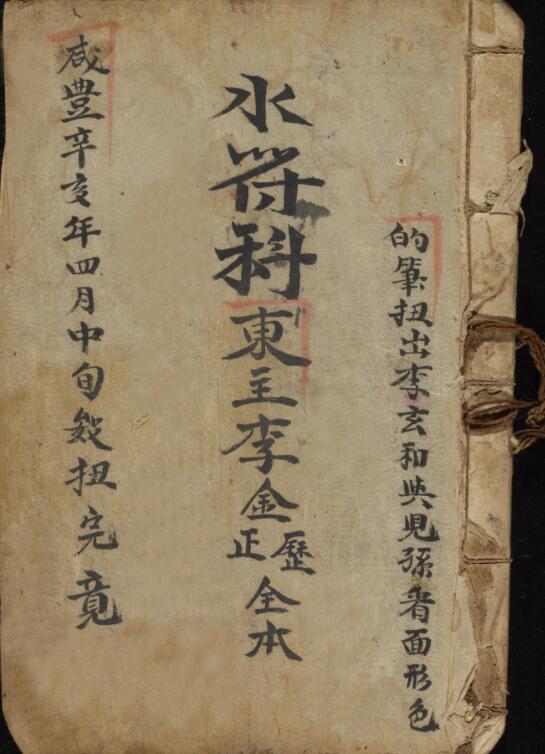 的筆扭出李玄和與見孫看面形色
水符科東主李金歷正全本
咸豊辛亥年四月中旬敍扭完竟